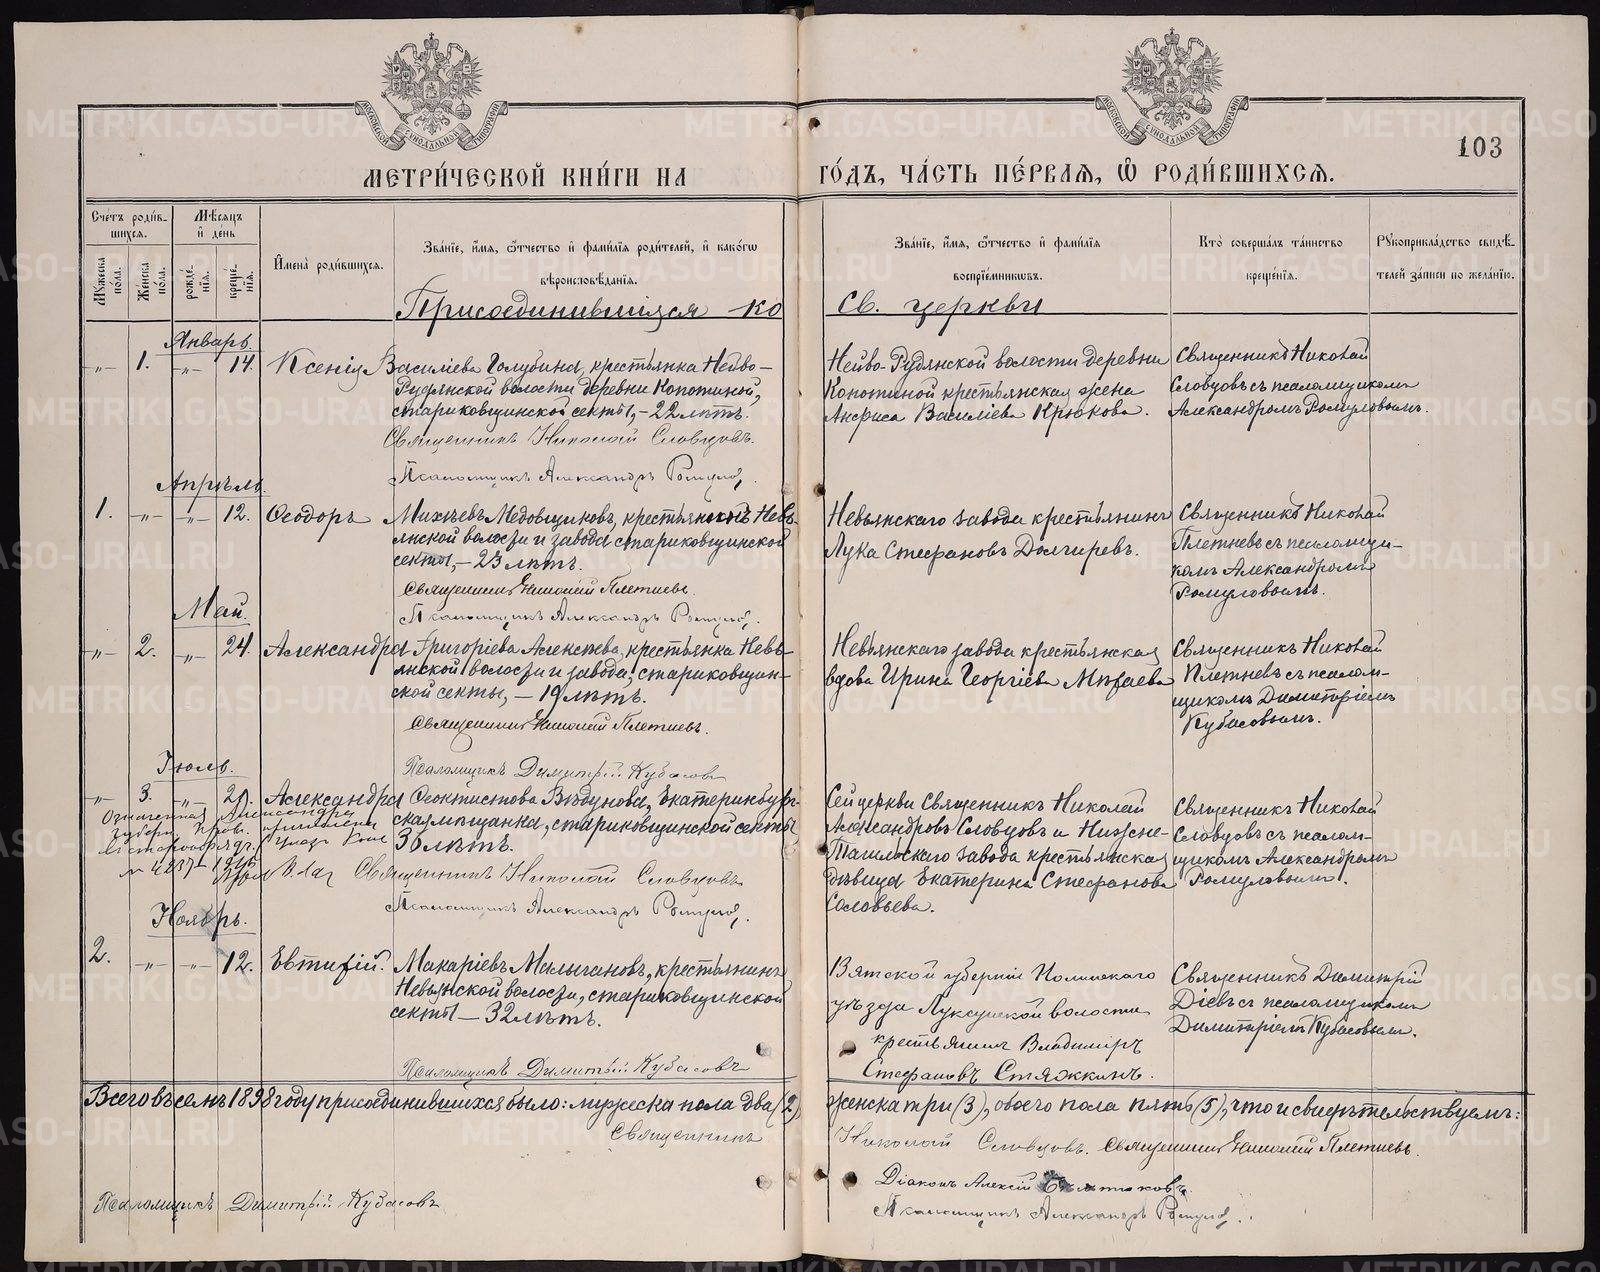 МОСКОВСКОЙ СѴНОДАЛЬНОЙ ТИПОГРАФІИ
МОСКОВСКОЙ СѴНОДАЛЬНОЙ ТИПОГРАФІИ
103
МЕТРИ́ЧЕСКОЙ КНИ́ГИ НА ГО́ДЪ, ЧА́СТЬ ПЕ́РВАѦ, Ѡ҆ РОДИ́ВШИХСѦ.
Сче́тъ роди́в-
шихсѧ.
Мꙋ́жеска по́ла.
Же́нска по́ла.
Мѣ́сѧцъ
и҆ де́нь
рожде́-
нїѧ.
креще́-
нїѧ.
И҆мена̀ роди́вшихсѧ.
Зва́нїе, и҆́мѧ, ѻ҆́тчество и҆ фами́лїѧ роди́телей, и҆ како́гѡ
вѣроисповѣ́данїѧ.
Зва́нїе, и҆́мѧ, ѻ҆́тчество и҆ фами́лїѧ
воспрїе́мниковъ.
Кто̀ соверша́лъ та́инство
креще́нїѧ.
Рꙋкоприкла́дство свидѣ́-
телей за́писи по жела́нїю.
Присоединившіяся ко Св. церкви
Январь.
-„- 1. -„- 14. Ксенія Василіева Голубина, крестьянка Нейво-
Рудянской волости деревни Копотиной,
стариковщинской секты, - 22 лѣтъ.
Священникъ Николай Словцовъ.
Псаломщикъ Александръ Ромуловъ.
Нейво-Рудянской волости деревни
Копотиной крестьянская жена
Анфиса Василіева Крюкова.
Священникъ Николай
Словцовъ съ псаломщикомъ
Александромъ Ромуловымъ.
Апрѣль.
1. -„- -„- 12. Ѳеодоръ Михѣевъ Медовщиковъ, крестьянинъ Невь-
янской волости и завода стариковщинской
секты, - 23 лѣтъ.
Священникъ Николай Плетневъ.
Псаломщикъ Александръ Ромуловъ.
Невьянскаго завода крестьянинъ
Лука Стефановъ Долгиревъ.
Священникъ Николай
Плетневъ съ псаломщи-
комъ Александромъ
Ромуловымъ.
Май.
-„- 2. -„- 24. Александра Григоріева Алексѣева, крестьянка Невь-
янской волости и завода, стариковщин-
ской секты, - 19 лѣтъ.
Священникъ Николай Плетневъ.
Псаломщикъ Димитрій Кубасовъ
Невьянскаго завода крестьянская
вдова Ирина Георгіева
Священникъ Николай
Плетневъ съ псалом-
щикомъ Димитріемъ
Кубасовымъ.
Іюль.
-„- 3. -„- Александра Ѳеоктистова Екатеринбург-
ская мѣщанка, стариковщинской секты
30 лѣтъ.
Означенная Александра
Священникъ Николай Словцовъ
Псаломщикъ Александръ Ромуловъ.
Сей церкви Священникъ Николай
Александровъ Словцовъ и Нижне-
Тагильскаго завода крестьянская
дѣвица Екатерина Стефанова
Соловьева.
Священникъ Николай
Словцовъ съ псалом-
щикомъ Александромъ
Ромуловымъ.
Ноябрь.
2. -„- -„- 12. Евтихій. Макаріевъ Малыгановъ, крестьянинъ
Невьянской волости, стариковщинской
секты - 32 лѣтъ.
Псаломщикъ Димитрій Кубасовъ
Вятской губерніи Нолинскаго
уѣзда волости
крестьянинъ Владиміръ
Стефановъ Стяжкинъ.
Священникъ Димитрій
Діевъ съ псаломщикомъ
Димитріемъ Кубасовымъ.
Всего въ семъ 1898 году присоединившихся было: мужеска пола два (2) женска три (3), обоего пола пять (5), что и свидѣтельствуемъ:
Священникъ Николай Словцовъ. Священникъ Николай Плетневъ.
Діаконъ Алексій
Псаломщикъ Димитрій Кубасовъ
Псаломщикъ Александръ Ромуловъ.
METRIKI.GASO-URAL.RU